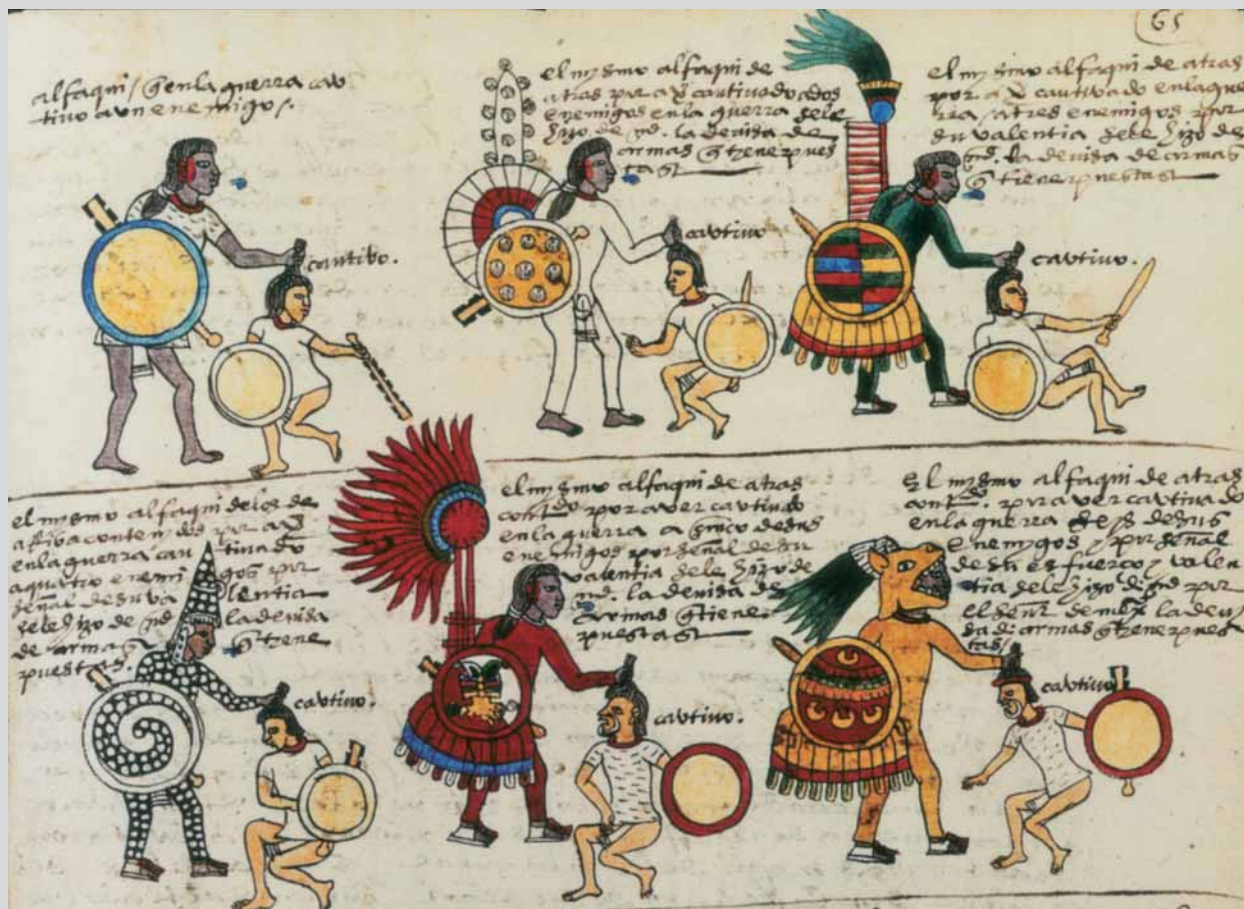 65
alfaqui / q̃ en la guerra cau
tivo a un enemigo /.
cautibo.
el mysmo alfaqui de
atras por aver cautivado a dos
enemigos en la guerra se le
hizo de md. la devisa de
armas q̃ tiene pues
tas
cautivo
el mysmo alfaqui de atras
por aver cautivado en la gue
rra / a tres enemigos por
su valentia se le hizo de
md. la devisa de armas
q̃ tiene puestas
cautivo.
el mysmo alfaqui de los de
arriba contenidos por aver
en la guerra cautivado
a quatro enemigos por
señal de su valentia
se le hizo de md la devisa
de armas q̃ tiene
puestas.
cautivo.
el mysmo alfaqui de atras
contdo por aver cautivado
en la guerra a cinco de sus
enemigos por señal de su
valentia se le hizo de
md. la devisa de
armas q̃ tiene
puestas
cautivo.
El mysmo alfaqui de atras
contdo. por aver cautivado
en la guerra seys de sus
enemygos y por señal
de su esfuerço y valen
tia se le hizo de md por
el señor de mexco la devi
sa de armas q̃ tiene pues
tas /
cautivo